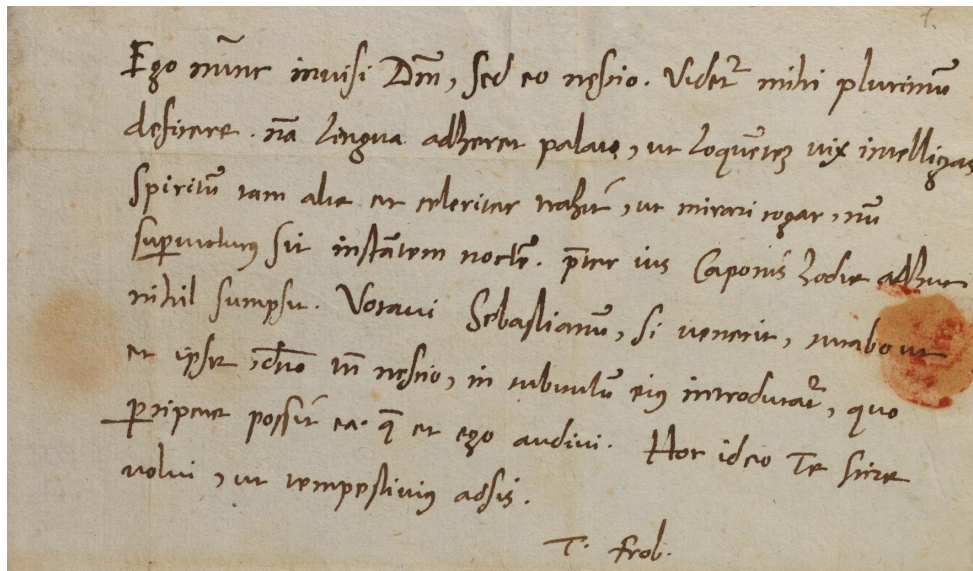 1.
Ego nūnc inuisi Dn̄m, sed eo nescio. Videtr̄ mihi plurimū
deficere. nā lingua adheret palato, ut loquētē uix intelligas
Spiritū tam alte et celeriter trahit, ut mirari cogar, nū
suꝑuicturus sit instātem noctē. p̄ter ius Caponis hodie adhuc
nihil sumpsit. Vocaui Sebastianū, si uenerit, curabo ut
et ipse, dn̄o tn̄ nescio, in cubiculū eius introducatr̄, quo
ꝑcipere possit ea. q̄ et ego audiui. Hoc ideo Te scire
uolui, ut tempestiuius adsis.
T. Frob.